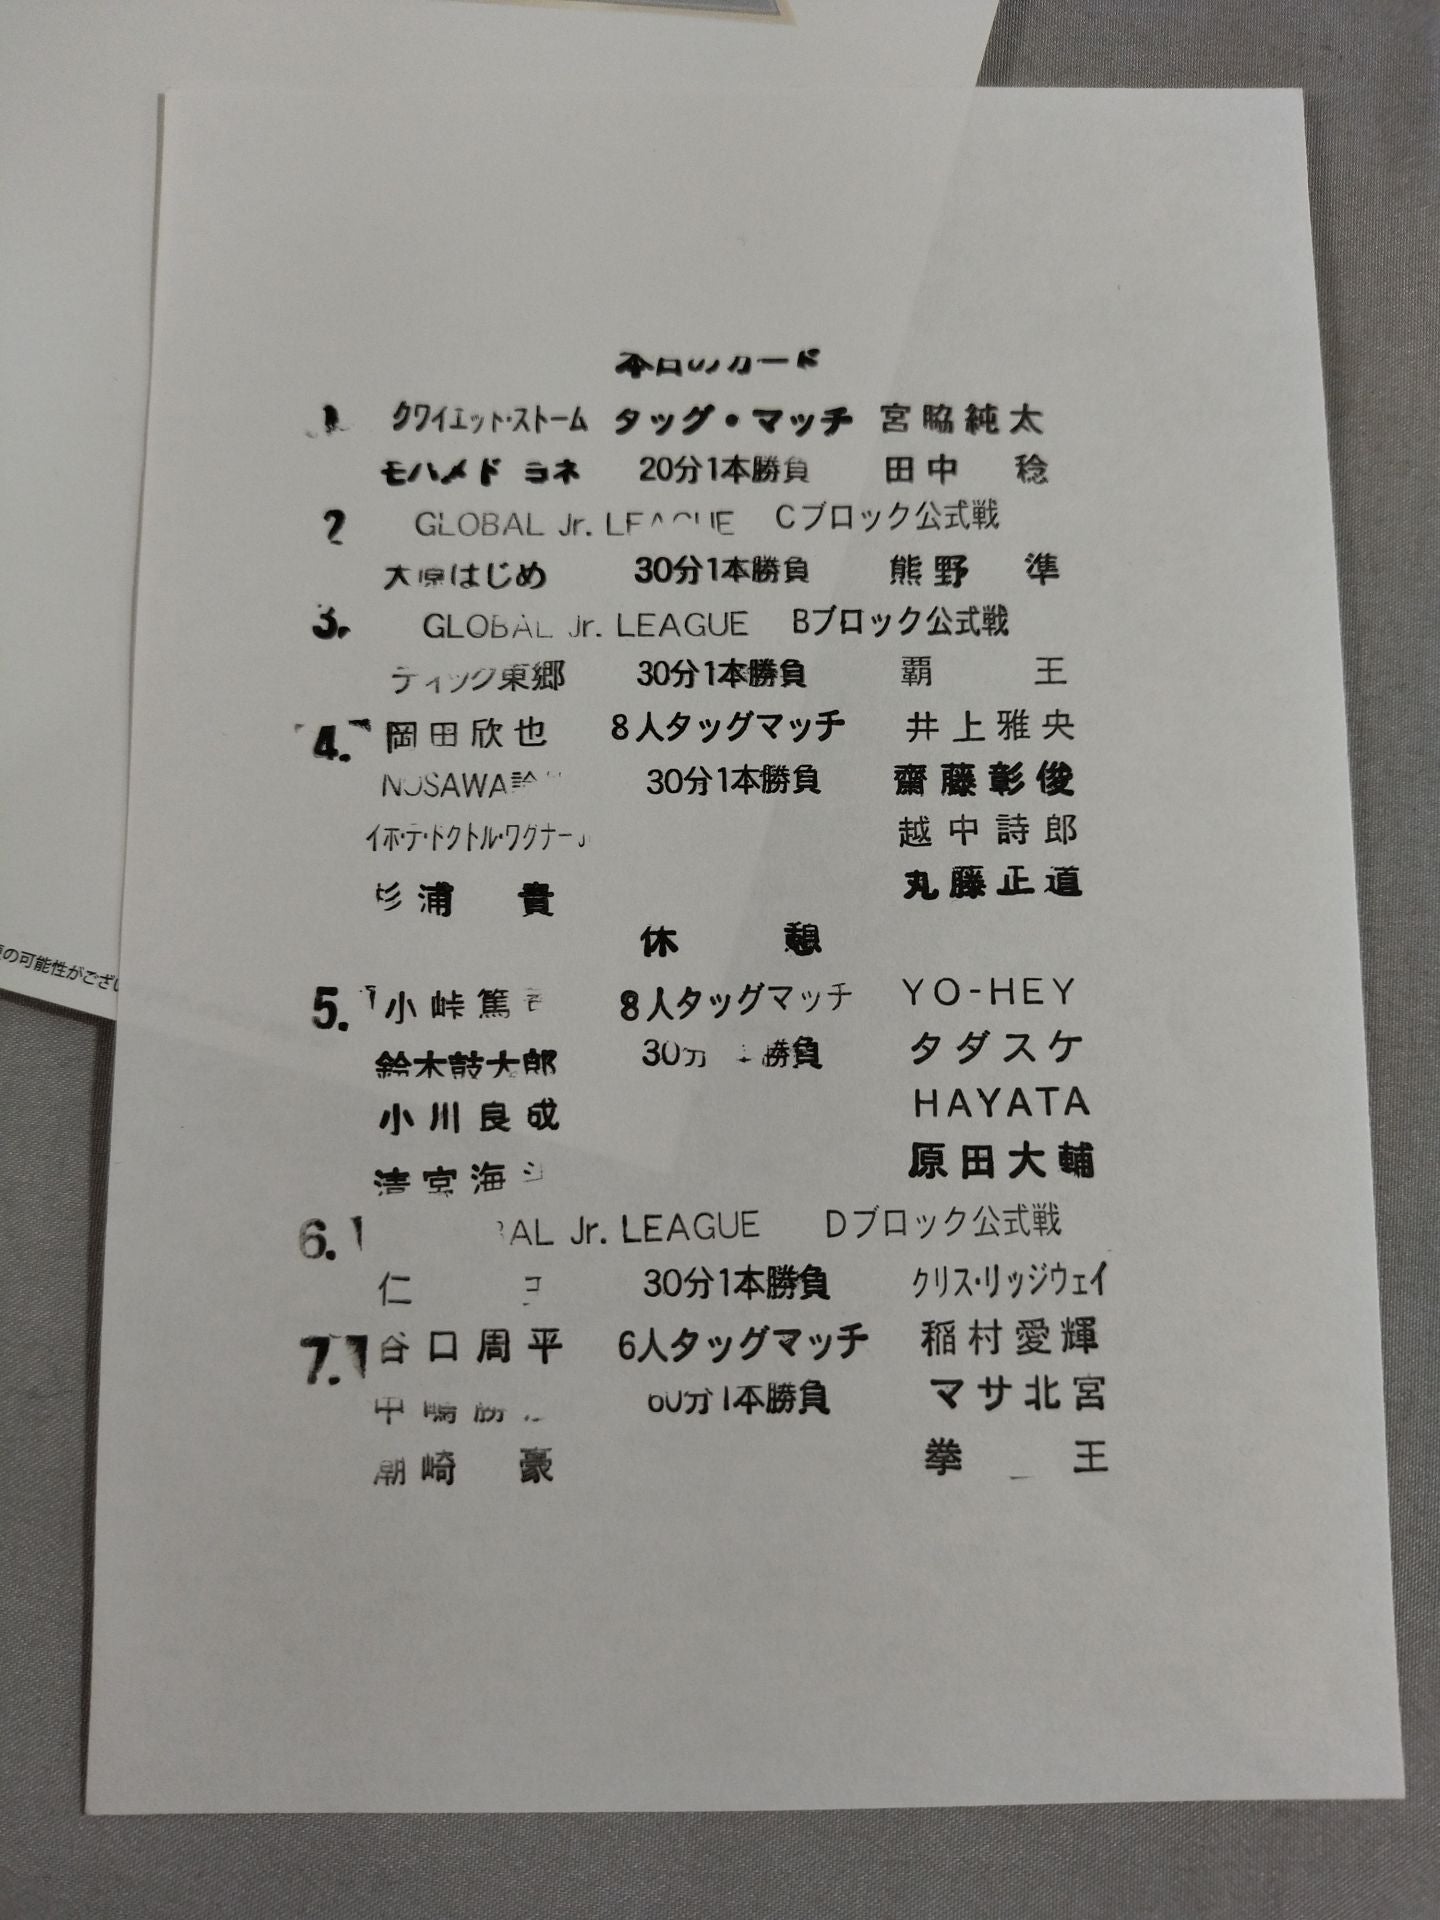 本日のカード
1 クワイエット・ストーム タッグ・マッチ 宮脇純太
モハメド ヨネ 20分1本勝負 田中 稔
2 GLOBAL Jr. LEAGUE Cブロック公式戦
大原はじめ 30分1本勝負 熊野 準
3. GLOBAL Jr. LEAGUE Bブロック公式戦
ディック東郷 30分1本勝負 覇 王
4. 岡田欣也 8人タッグマッチ 井上雅央
NOSAWA論 30分1本勝負 齋藤彰俊
イホ・デ・ドクトル・ワグナーJr 越中詩郎
杉浦 貴 丸藤正道
休 憩
5. 小峠篤 8人タッグマッチ YO-HEY
鈴木鼓太郎 30分1本勝負 タダスケ
小川良成 HAYATA
清宮海 原田大輔
6. BAL Jr. LEAGUE Dブロック公式戦
仁 王 30分1本勝負 クリス・リッジウェイ
7. 谷口周平 6人タッグマッチ 稲村愛輝
中嶋勝 60分1本勝負 マサ北宮
潮崎 豪 拳 王
の可能性がござい